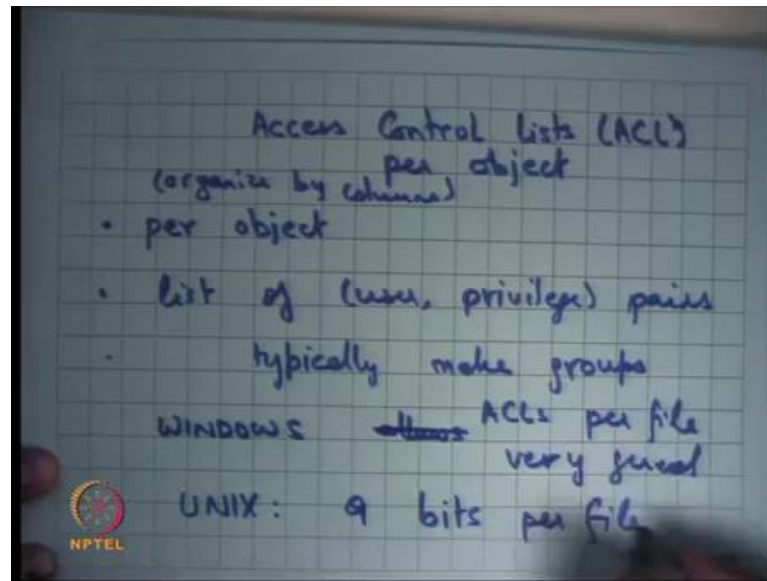 Access Control Lists (ACL)
per object
(organize by columns)
• per object
• list of (user, privilege) pairs
• typically make groups
WINDOWS ACLs per file
very general
UNIX: 9 bits per file
NPTEL